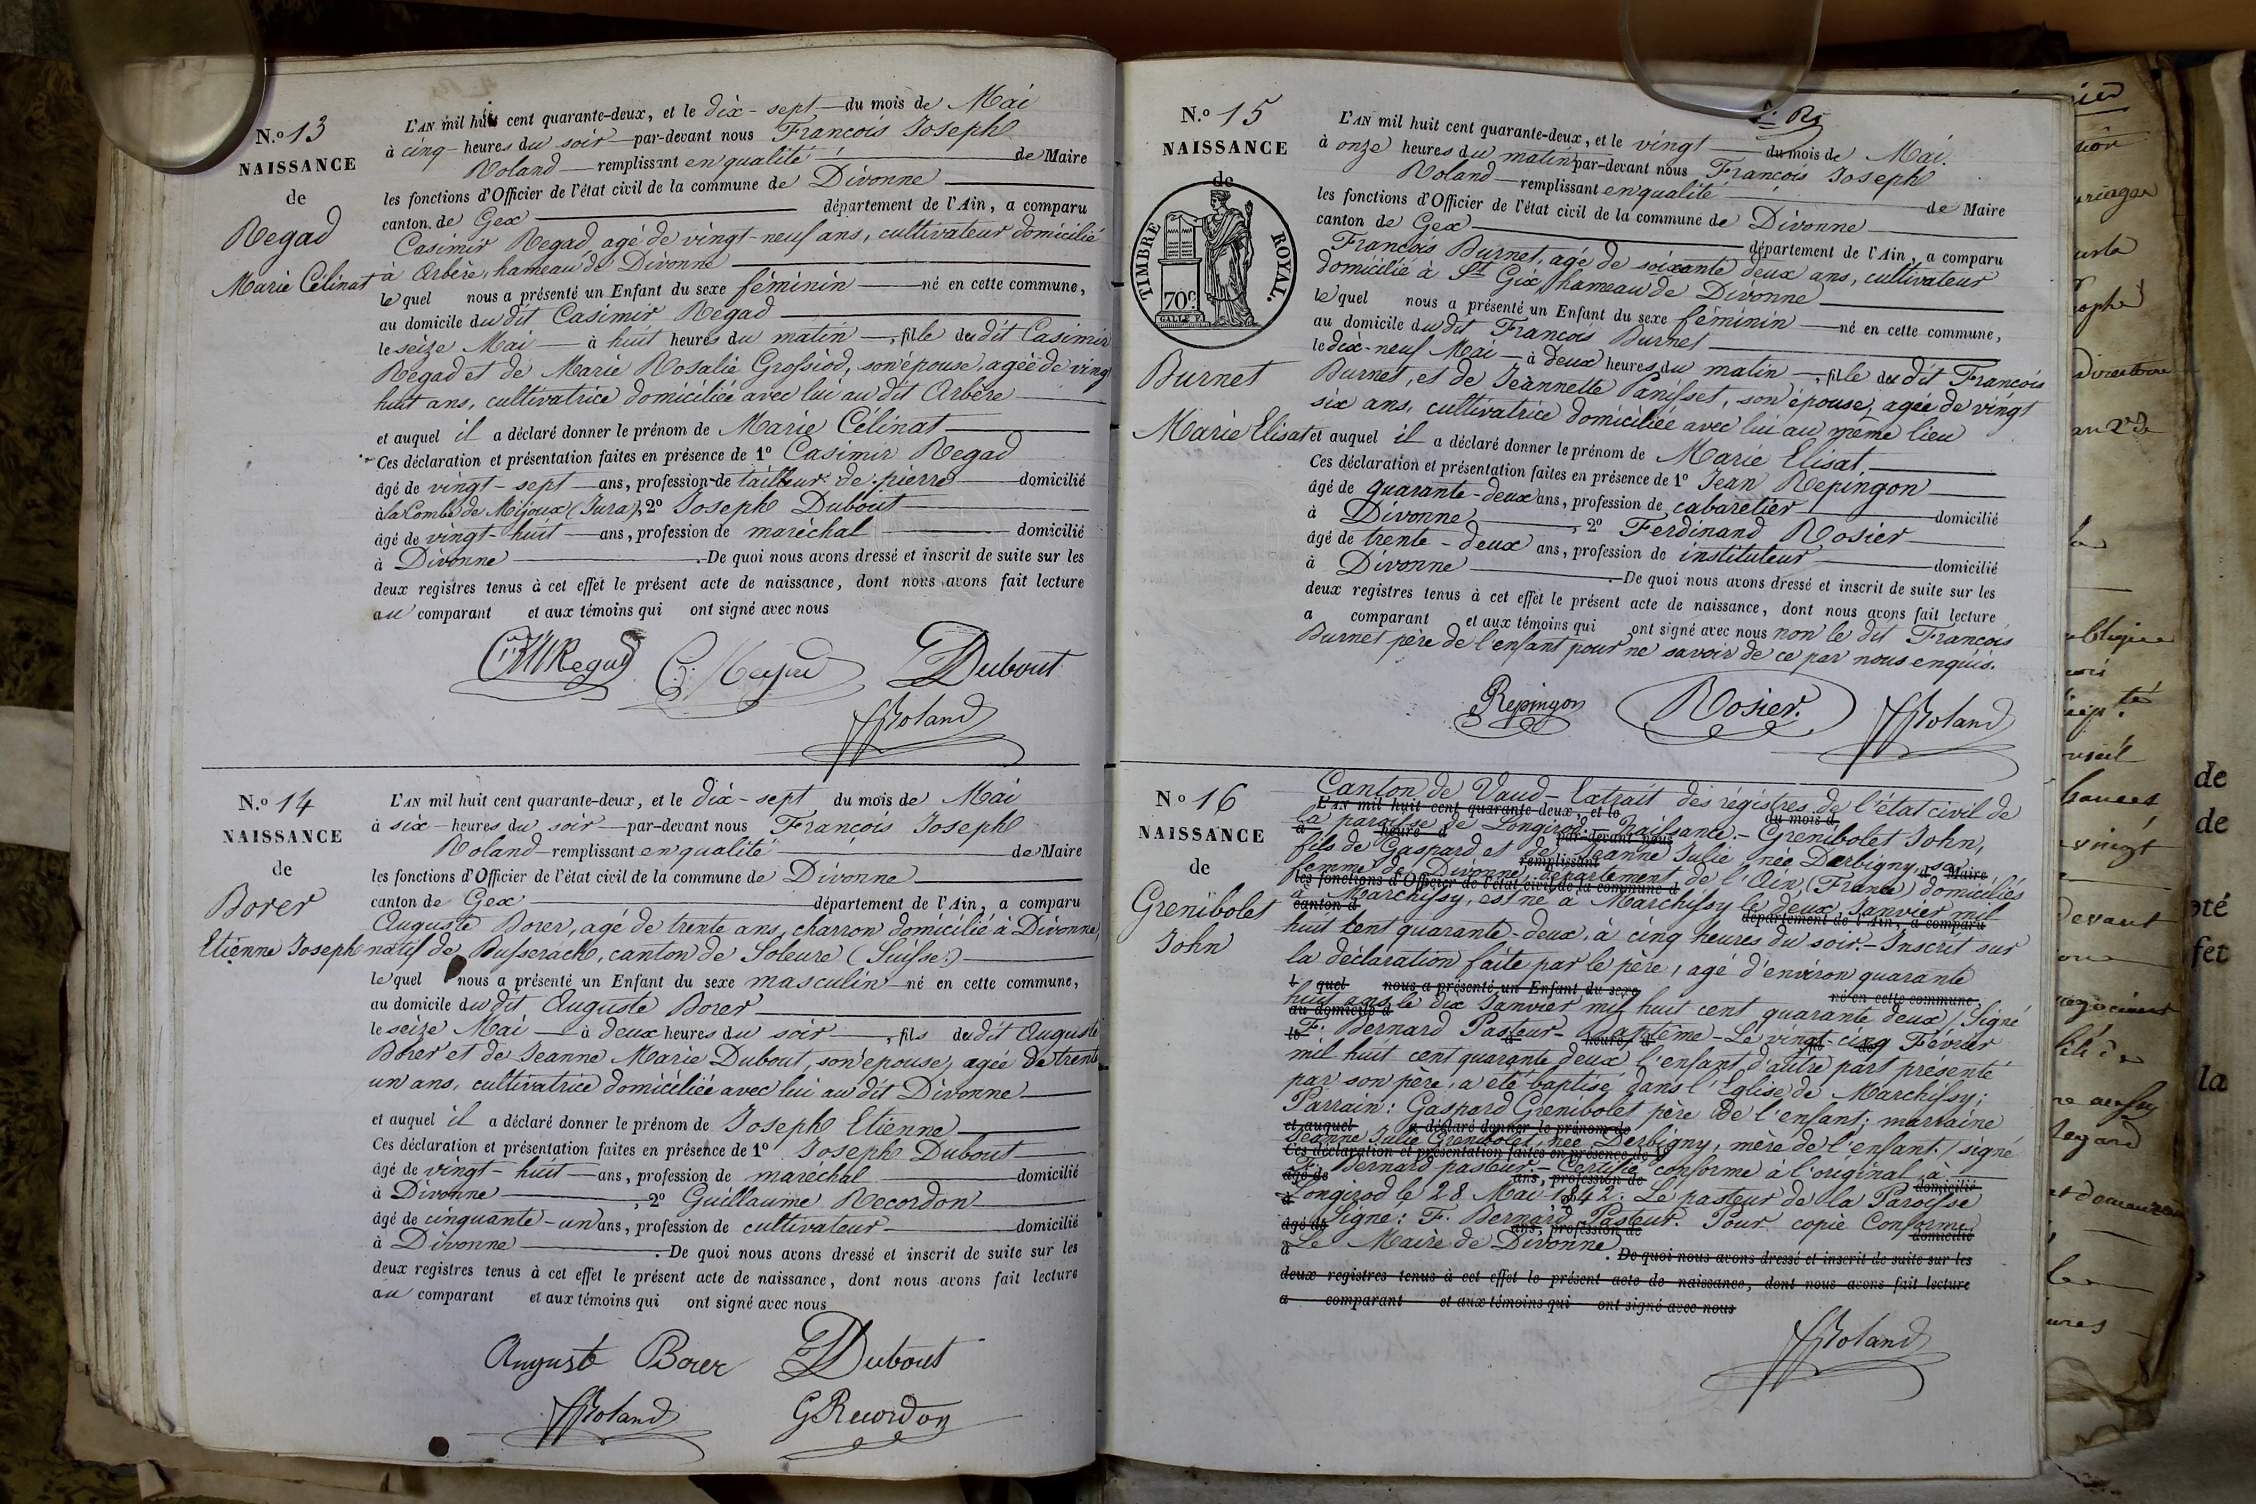 N.o 13
NAISSANCE
de
Regad
Marie Célinat
L'AN mil huit cent quarante-deux, et le dix-sept du mois de Mai
à cinq heures du soir par-devant nous François Joseph
Roland remplissant en qualité de Maire
les fonctions d'Officier de l'état civil de la commune de Divonne
canton de Gex département de l'Ain, a comparu
Casimir Regad agé de vingt-neuf ans, cultivateur domicilié
à Arbère, hameau de Divonne
le quel nous a présenté un Enfant du sexe féminin né en cette commune,
au domicile du dit Casimir Regad
le seize Mai à huit heures du matin, fille du dit Casimir
Regad et de Marie Rosalie Grossiod, son épouse, agée de vingt
huit ans, cultivatrice domiciliée avec lui au dit Arbère
et auquel il a déclaré donner le prénom de Marie Célinat
Ces déclaration et présentation faites en présence de 1o Casimir Regad
âgé de vingt-sept ans, profession de tailleur de pierre domicilié
à la Combe de Mijoux (Jura); 2o Joseph Dubout
âgé de vingt-huit ans, profession de maréchal domicilié
à Divonne. De quoi nous avons dressé et inscrit de suite sur les
deux registres tenus à cet effet le présent acte de naissance, dont nous avons fait lecture
au comparant et aux témoins qui ont signé avec nous
Regad Dubout
Roland
N.o 14
NAISSANCE
de
Borer
Etienne Joseph
L'AN mil huit cent quarante-deux, et le dix-sept du mois de Mai
à six heures du soir par-devant nous François Joseph
Roland remplissant en qualité de Maire
les fonctions d'Officier de l'état civil de la commune de Divonne
canton de Gex département de l'Ain, a comparu
Auguste Borer, agé de trente ans, charron domicilié à Divonne,
natif de Busserach, canton de Soleure (Suisse)
le quel nous a présenté un Enfant du sexe masculin né en cette commune,
au domicile du dit Auguste Borer
le seize Mai à deux heures du soir, fils du dit Auguste
Borer et de Jeanne Marie Dubout, son épouse, agée de trente
un ans, cultivatrice domiciliée avec lui au dit Divonne
et auquel il a déclaré donner le prénom de Joseph Etienne
Ces déclaration et présentation faites en présence de 1o Joseph Dubout
âgé de vingt-huit ans, profession de maréchal domicilié
à Divonne, 2o Guillaume Recordon
âgé de cinquante-un ans, profession de cultivateur domicilié
à Divonne. De quoi nous avons dressé et inscrit de suite sur les
deux registres tenus à cet effet le présent acte de naissance, dont nous avons fait lecture
au comparant et aux témoins qui ont signé avec nous
Auguste Borer Dubout
Roland G Recordon
N.o 15
NAISSANCE
de
TIMBRE ROYAL.
70c.
Burnet
Marie Elisat
L'AN mil huit cent quarante-deux, et le vingt du mois de Mai.
à onze heures du matin par-devant nous François Joseph
Roland remplissant en qualité de Maire
les fonctions d'Officier de l'état civil de la commune de Divonne
canton de Gex département de l'Ain, a comparu
François Burnet, agé de soixante deux ans, cultivateur
domicilié à St Gix, hameau de Divonne
le quel nous a présenté un Enfant du sexe féminin né en cette commune,
au domicile du dit François Burnet
le dix-neuf Mai à deux heures du matin, fille du dit François
Burnet, et de Jeannette Panisset, son épouse, agée de vingt
six ans, cultivatrice domiciliée avec lui au même lieu
et auquel il a déclaré donner le prénom de Marie Elisat.
Ces déclaration et présentation faites en présence de 1o Jean Repingon
âgé de quarante-deux ans, profession de cabaretier domicilié
à Divonne, 2o Ferdinand Rosier
âgé de trente-deux ans, profession de instituteur domicilié
à Divonne. De quoi nous avons dressé et inscrit de suite sur les
deux registres tenus à cet effet le présent acte de naissance, dont nous avons fait lecture
a comparant et aux témoins qui ont signé avec nous non le dit François
Burnet père de l'enfant pour ne savoir de ce par nous enquis.
Repingon Rosier. Roland
No 16
NAISSANCE
de
Grenibolet
John
Canton de Vaud - Extrait des régistres de l'état civil de
L'AN mil huit cent quarante-deux, et le du mois d
la paroisse de Longirod - Naissance. - Grenibolet John,
à heure d par-devant nous
fils de Gaspard et de Jeanne Julie née Derbigny, sa
remplissant d Maire
femme de Divonne, département de l'Ain, (France) domiciliés
les fonctions d'Officier de l'état civil de la commune d
à Marchissy, est né à Marchissy le deux Janvier mil
canton d département de l'Ain, a comparu
huit cent quarante-deux, à cinq heures du soir. - Inscrit sur
la déclaration faite par le père, agé d'environ quarante
l quel nous a présenté un Enfant du sexe né en cette commune,
huit ans, le dix Janvier mil huit cent quarante deux / Signé
au domicile d
F. Bernard Pasteur - Baptême - Le vingt-cinq Février
le à heures d
mil huit cent quarante deux l'enfant d'autre part présenté
par son père, a été baptisé dans l'Eglise de Marchissy;
Parrain: Gaspard Grenibolet père de l'enfant; marraine
et auquel a déclaré donner le prénom de
Jeanne Julie Grenibolet, née Derbigny, mère de l'enfant. / signé
Ces déclaration et présentation faites en présence de 1o
F. Bernard pasteur. - Certifié conforme à l'original, à
âgé de ans, profession de domicilié
Longirod le 28 Mai 1842. Le pasteur de la Paroisse
à
Signé: F. Bernard Pasteur. Pour copie Conforme
âgé de ans, profession de domicilié
Le Maire de Divonne
à . De quoi nous avons dressé et inscrit de suite sur les
deux registres tenus à cet effet le présent acte de naissance, dont nous avons fait lecture
a comparant et aux témoins qui ont signé avec nous
Roland
de
de
fet
la